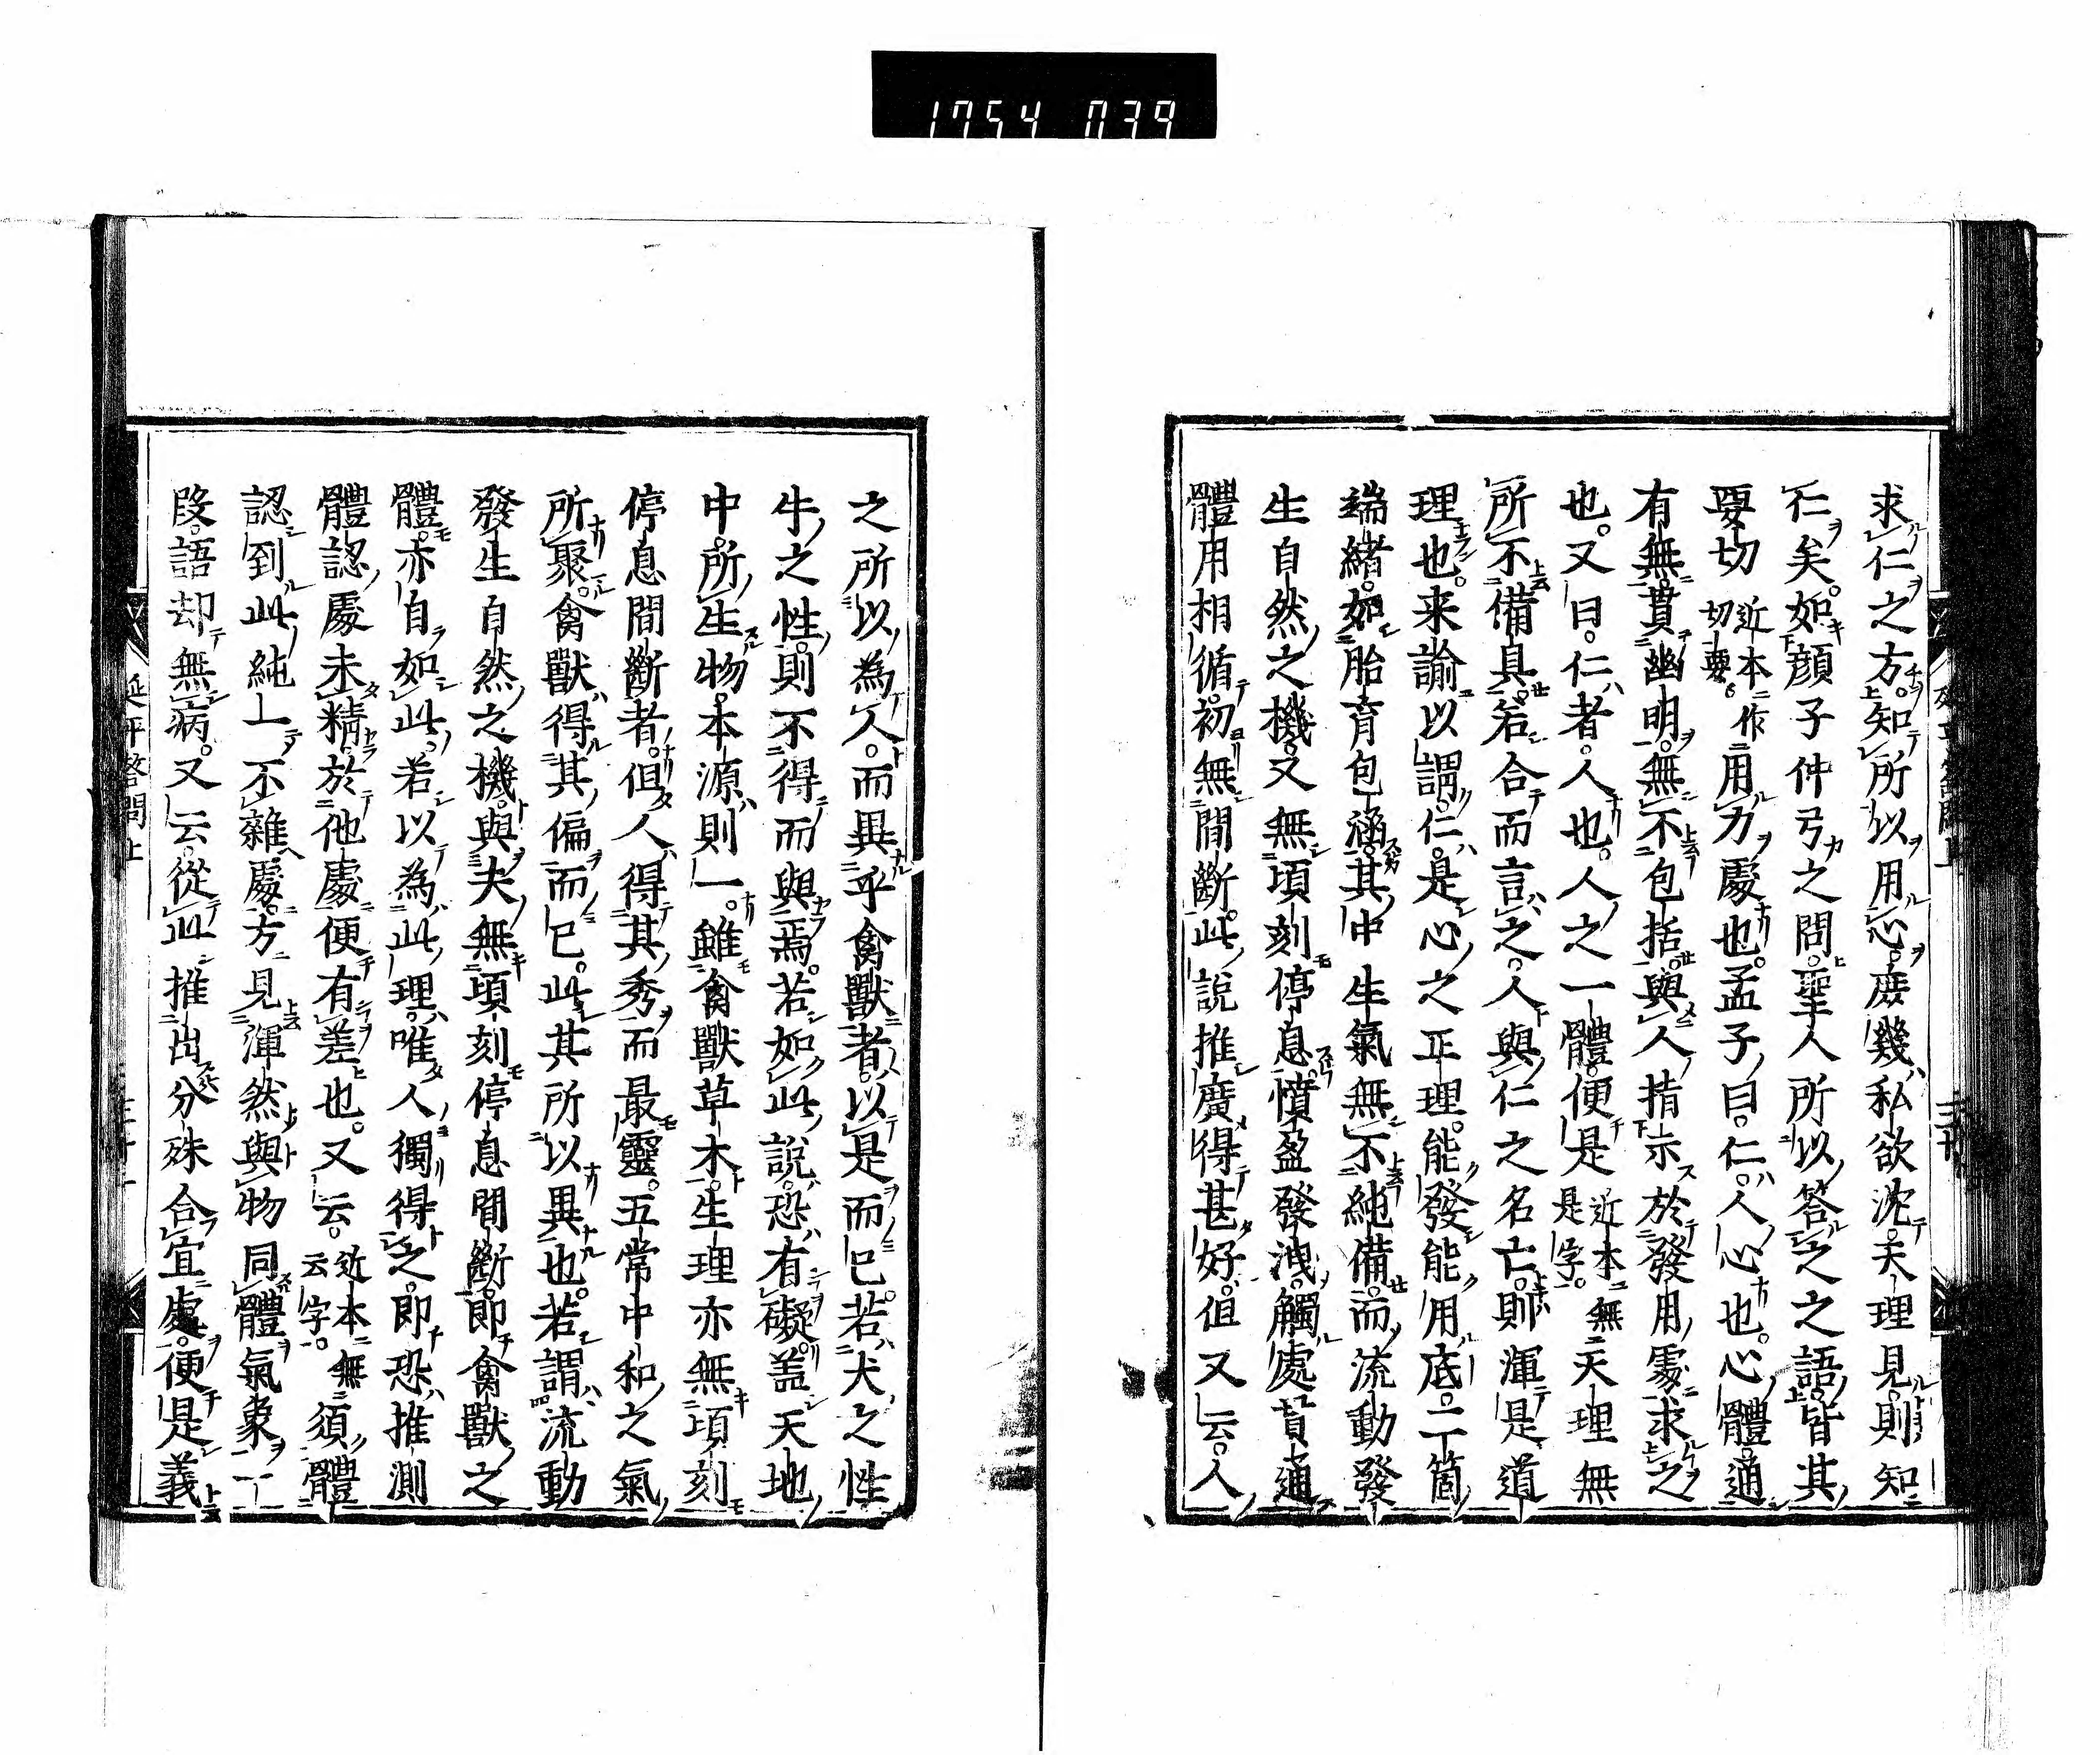 1754 039
求仁之方。知所以用心。庶幾私欲沈。天理見。則知
仁矣。如顔子仲弓之問。聖人所以答之之語。皆其
要切近本作切要。用力處也。孟子曰。仁。人心也。心體通
有無。貫幽明。無不包括。與人指示於發用處求之
也。又曰。仁者。人也。人之一體。便是近本無是字。天理無
所不備具。若合而言之。人與仁之名亡。則渾是道
理也。来諭以謂。仁是心之正理。能發能用底一箇
端緒。如胎育包涵其中生氣無不純備。而流動發
生自然之機。又無頃刻停息。憤盈發洩。觸處貫通
體用相循。初無間斷。此說推廣得甚好。但又云。人
之所以為人。而異乎禽獸者。以是而已。若犬之性
牛之性。則不得而與焉。若如此說。恐有礙。盖天地
中。所生物。本源則一。雖禽獸草木。生理亦無頃刻
停息間斷者。但人得其秀而最靈。五常中和之氣
所聚。禽獸得其偏而已。此其所以異也。若謂流動
發生自然之機。與夫無頃刻停息間斷。即禽獸之
體。亦自如此。若以為此理唯人獨得之。即恐推測
體認處未精。於他處便有差也。又云。近本無云字。須體
認到此純一不雜處。方見渾然與物同體氣象一
段。語却無病。又云。從此推出分殊合宜處。便是義
延平答問上